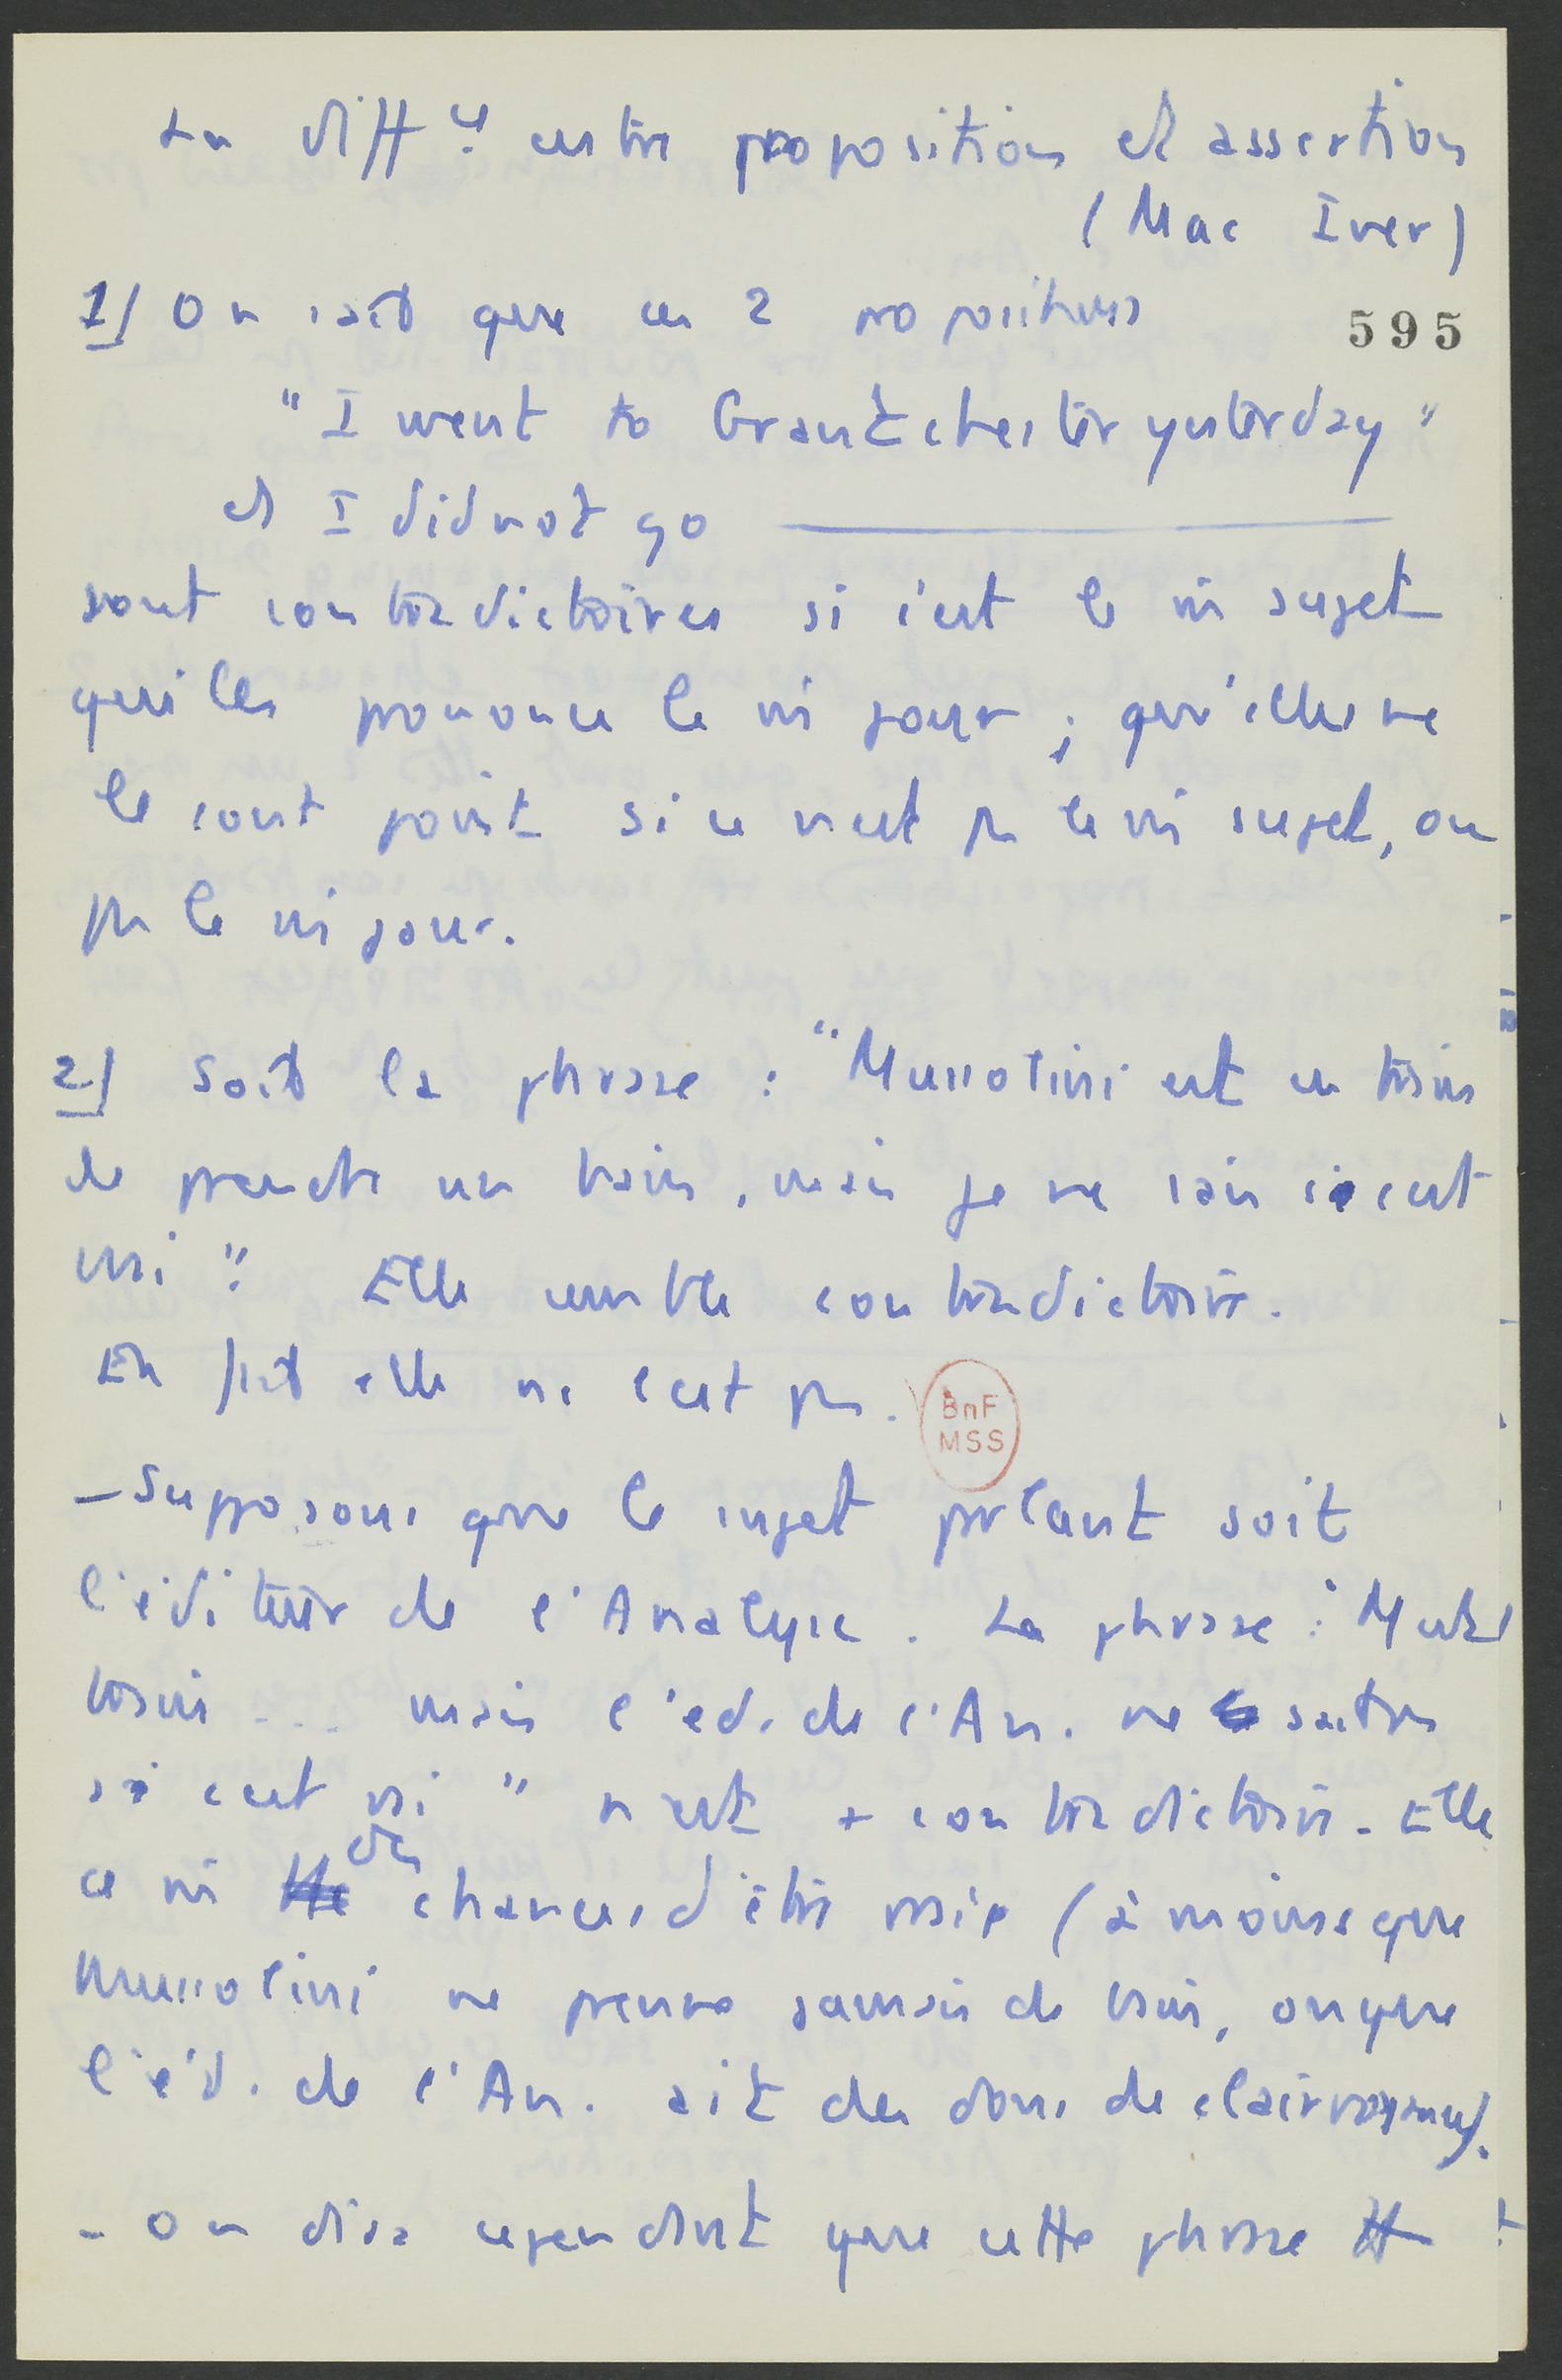 La diff ce entre proposition et assertion
(Mac Iver)
1/ On sait que ces 2 propositions
595
"I went to Grantchester yesterday"
et I did not go ———
sont contradictoires si c'est le m sujet
qui les prononce le m jour ; qu'elles ne
le sont point si ce n'est pas le m sujet, ou
pas le m jour.
2/ Soit la phrase : "Mussolini est en train
de prendre un bain, mais je ne sais si c'est
vrai". Elle semble contradictoire.
En fait elle ne l'est pas.
BnF
MSS
- Supposons que le sujet parlant soit
l'éditeur de l'Analysis. La phrase : "M est
bain ... mais l'éd. de l'An. ne sait pas
si c'est vrai" n'est + contradictoire. Elle
a m des chances d'être vraie (à moins que
Mussolini ne prenne jamais de bain, ou que
l'éd. de l'An. ait des dons de clairvoyance).
- On dira cependant que cette phrase